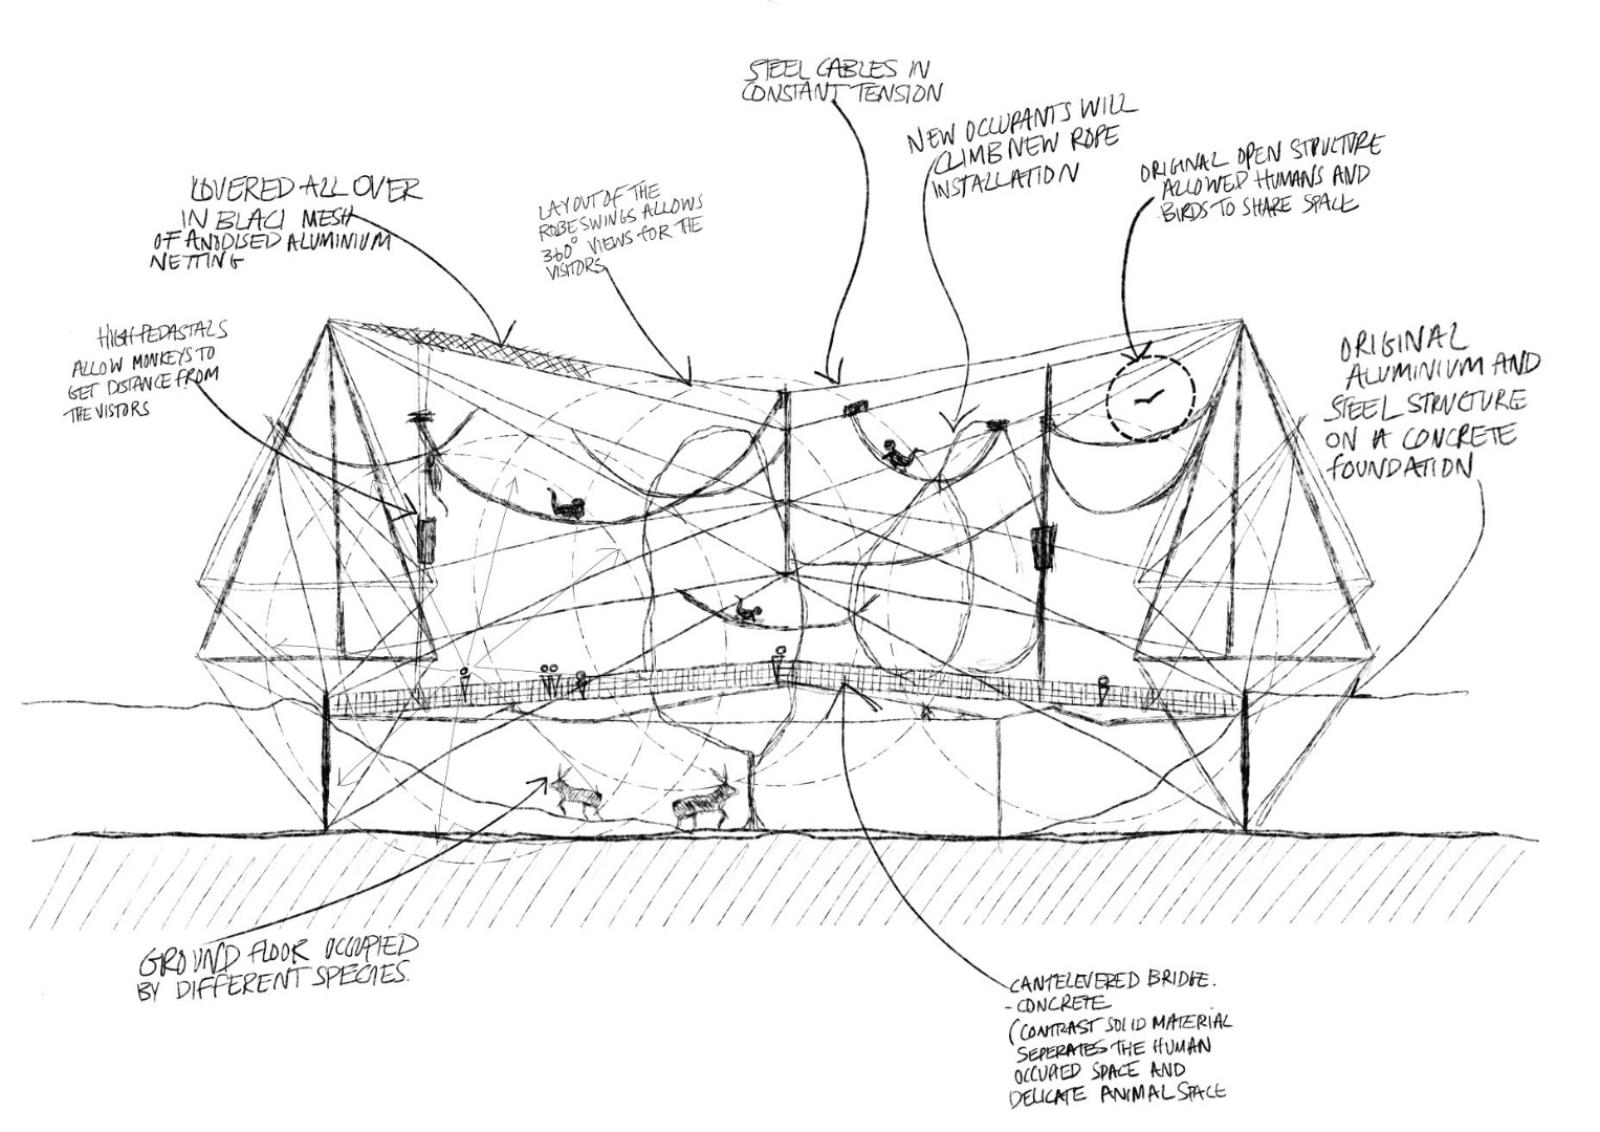 STEEL CABLES IN
CONSTANT TENSION
NEW OCCUPANTS WILL
CLIMB NEW ROPE
INSTALLATION
ORIGINAL OPEN STRUCTURE
ALLOWED HUMANS AND
BIRDS TO SHARE SPACE
COVERED ALL OVER
IN BLACK MESH
OF ANODISED ALUMINIUM
NETTING
LAYOUT OF THE
ROBESWINGS ALLOWS
360° VIEWS FOR THE
VISITORS
HIGH PEDASTALS
ALLOW MONKEYS TO
GET DISTANCE FROM
THE VISTORS
ORIGINAL
ALUMINIUM AND
STEEL STRUCTURE
ON A CONCRETE
FOUNDATION
GROUND FLOOR OCCUPIED
BY DIFFERENT SPECIES.
CANTELEVERED BRIDGE.
- CONCRETE
(CONTRAST SOLID MATERIAL
SEPERATES THE HUMAN
OCCUPIED SPACE AND
DELICATE ANIMAL SPACE